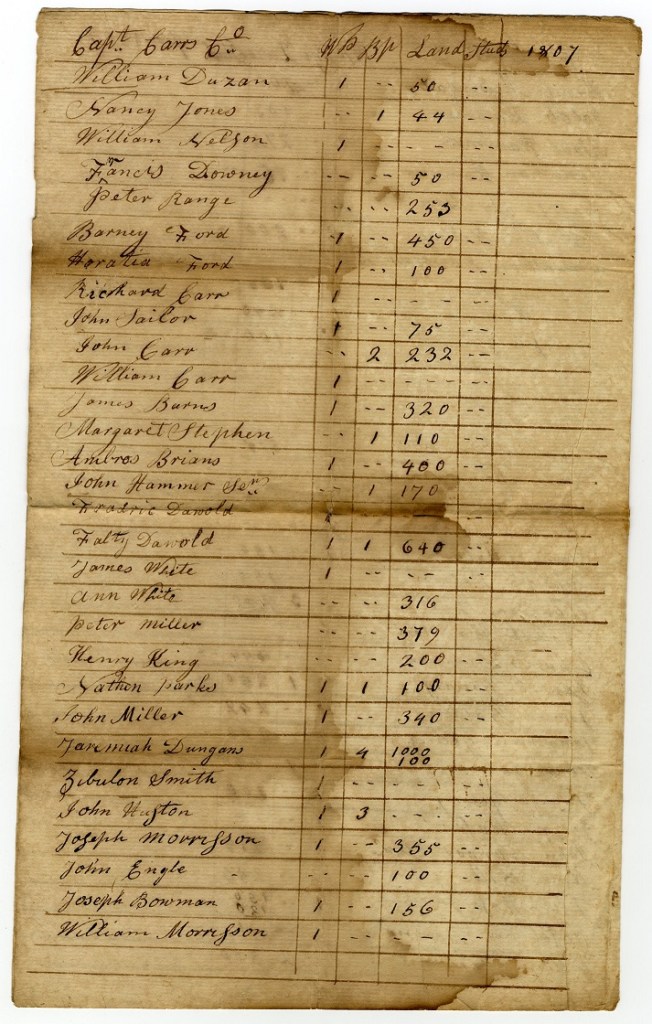 Capt. Carrs Co. Wp Bp Land Stud 1807
William Duzan 1 -- 50 --
Nancy Jones -- 1 44 --
William Nelson 1 -- -- --
Francis Downey -- -- 50 --
Peter Range -- -- 253
Barney Ford 1 -- 450 --
Horatia Ford 1 -- 100 --
Richard Carr 1 - - -
John Sailor 1 -- 75 --
John Carr -- 2 232 --
William Carr 1 - - - --
James Barns 1 -- 320 --
Margaret Stephen -- 1 110 --
Ambros Brians 1 -- 400 --
John Hammer Senr. -- 1 170 --
Fradric Dawold --
Falty Dawold 1 1 640 --
James White 1 -- -- -
Ann White -- -- 316
Peter Miller -- -- 379
Henry King -- -- 200 --
Nathen Parks 1 1 100 --
John Miller 1 -- 340 --
Jaremiah Dungans 1 4 1000 --
100
Zebulon Smith 1 -- -- --
John Huston 1 3 - - - --
Joseph Morrisson 1 -- 355 --
John Engle - -- 100 --
Joseph Bowman 1 -- 156 --
William Morrisson 1 - - - --